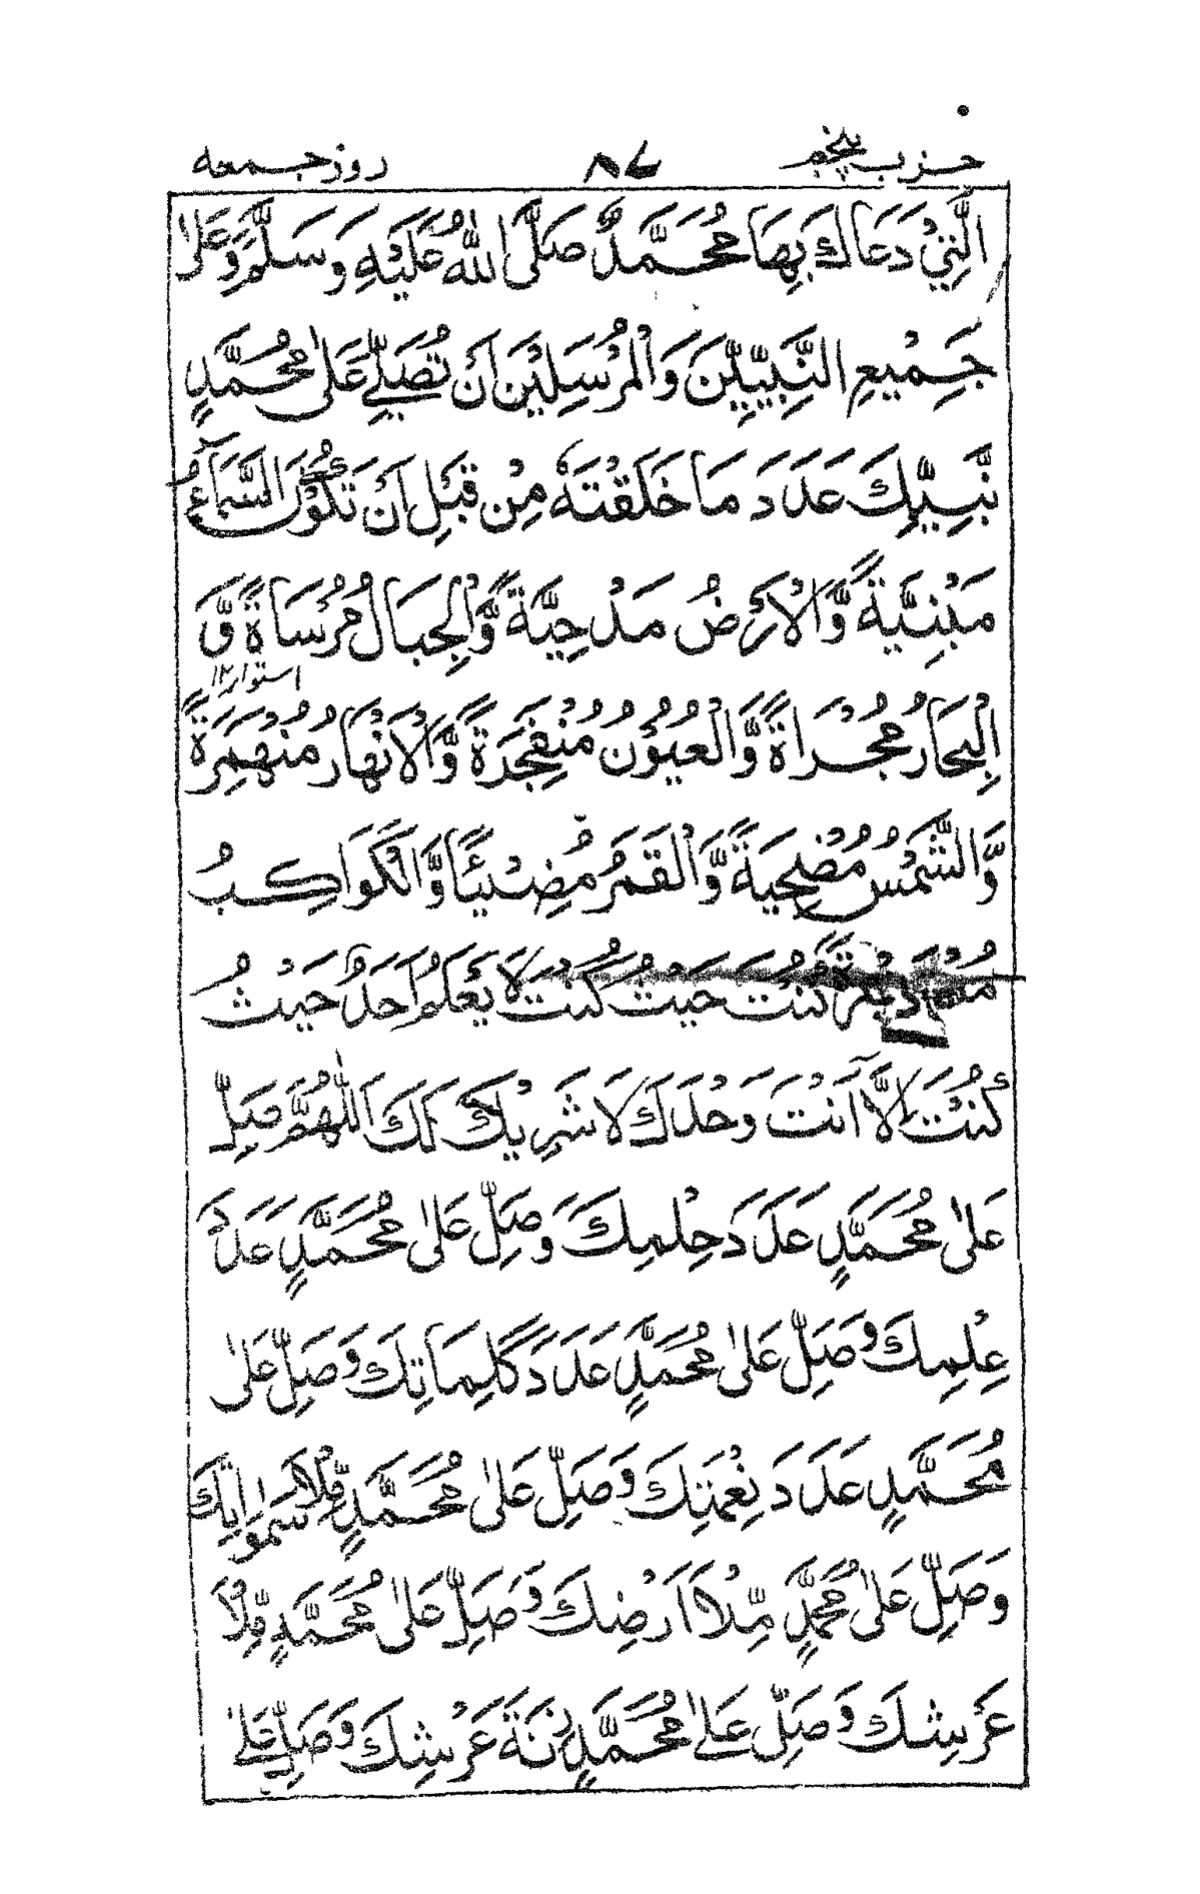 حزب پنجم ٨٧ روز جمعه
الَّتِيْ دَعَاكَ بِهَا مُحَمَّدٌ صَلَّى اللهُ عَلَيْهِ وَسَلَّمَ وَعَلٰى
جَمِيْعِ النَّبِيِّيْنَ وَالْمُرْسَلِيْنَ اَنْ تُصَلِّيَ عَلٰى مُحَمَّدٍ
نَّبِيِّكَ عَدَدَ مَا خَلَقْتَهٗ مِنْ قَبْلِ اَنْ تَكُوْنَ السَّمَآءُ
مَبْنِيَّةً وَّالْاَرْضُ مَدْحِيَّةً وَّالْجِبَالُ مُرْسَاةً وَّ
استوار ١٢
الْبِحَارُ مُجْرَاةً وَّالْعُيُوْنُ مُنْفَجِرَةً وَّالْاَنْهَارُ مُنْهَمِرَةً
وَّالشَّمْسُ مُضْحِيَةً وَّالْقَمَرُ مُضِيْئًا وَّالْكَوَاكِبُ
مُسْتَنِيْرَةً كُنْتَ حَيْثُ كُنْتَ لَا يَعْلَمُ اَحَدٌ حَيْثُ
كُنْتَ اِلَّا اَنْتَ وَحْدَكَ لَا شَرِيْكَ لَكَ اَللّٰهُمَّ صَلِّ
عَلٰى مُحَمَّدٍ عَدَدَ حِلْمِكَ وَصَلِّ عَلٰى مُحَمَّدٍ عَدَدَ
عِلْمِكَ وَصَلِّ عَلٰى مُحَمَّدٍ عَدَدَ كَلِمَاتِكَ وَصَلِّ عَلٰى
مُحَمَّدٍ عَدَدَ نِعْمَتِكَ وَصَلِّ عَلٰى مُحَمَّدٍ مِّلْاَ سَمٰوَاتِكَ
وَصَلِّ عَلٰى مُحَمَّدٍ مِّلْاَ اَرْضِكَ وَصَلِّ عَلٰى مُحَمَّدٍ مِّلْاَ
عَرْشِكَ وَصَلِّ عَلٰى مُحَمَّدٍ زِنَةَ عَرْشِكَ وَصَلِّ عَلٰى